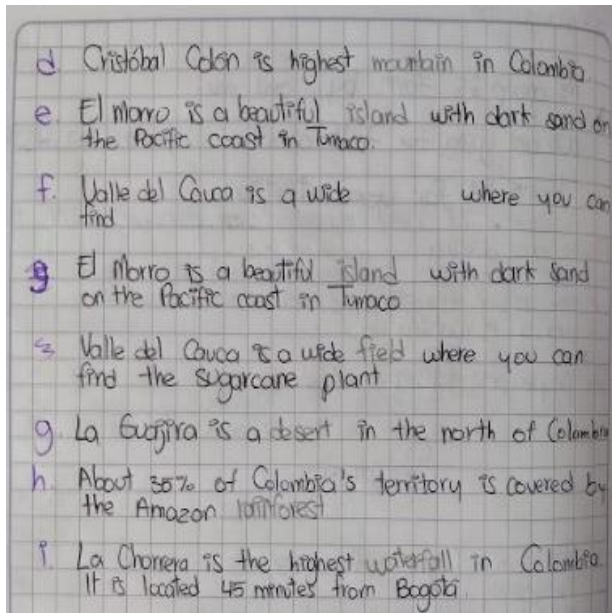 d. Cristóbal Colón is highest mountain in Colombia
e. El Morro is a beautiful island with dark sand on
the Pacific coast in Tumaco.
f. Valle del Cauca is a wide where you can
find
g El Morro is a beautiful island with dark sand
on the Pacific coast in Tumaco
Valle del Cauca is a wide field where you can
find the sugarcane plant
g. La Guajira is a desert in the north of Colombia
h. About 35% of Colombia's territory is covered by
the Amazon rainforest
i. La Chorrera is the highest waterfall in Colombia.
It is located 45 minutes from Bogotá.